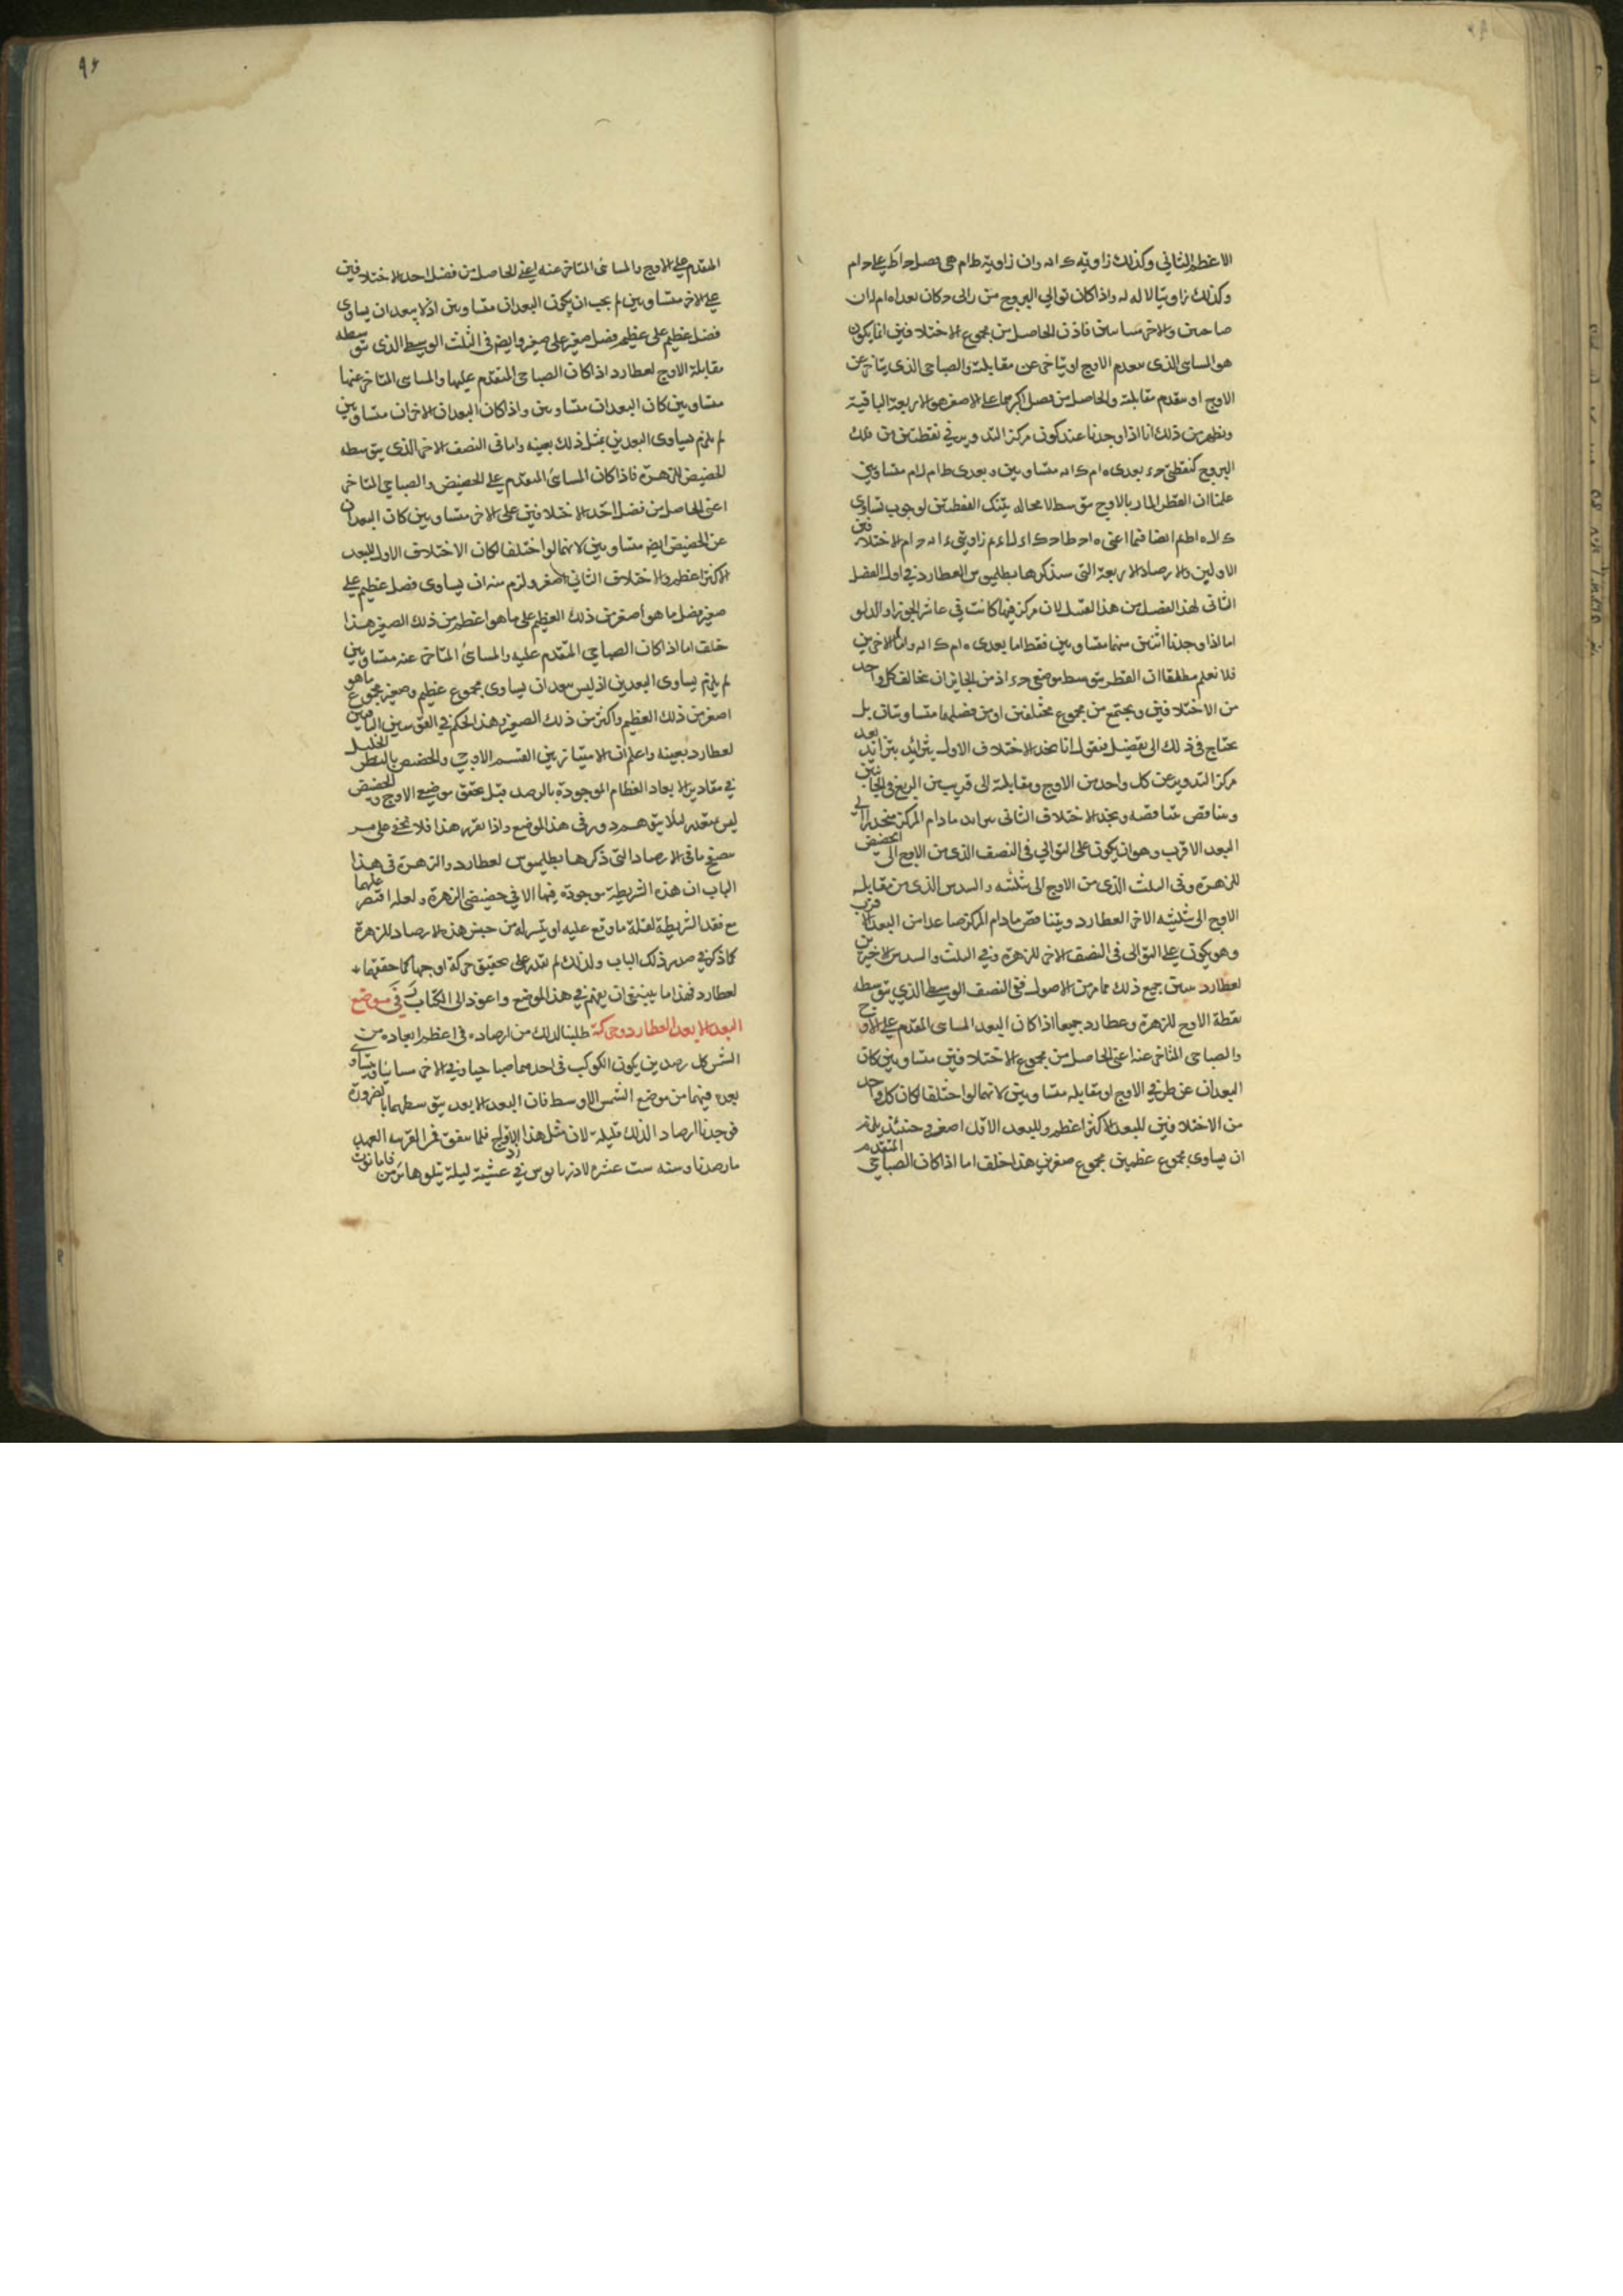 الاعظم الثاني وكذلك زاويتا
وكذلك زاويتا واذا كان توالي البروج من
فاذن الحاصل من مجموع الاختلافين انما يكون
هو المسائى الذى الاوج او يتاخر عن مقابلته والصباحى الذى يتاخر عن
الاوج او مقابلته والحاصل من اكبرهما على الاصغر هو الاربعة الباقية
من ذلك انا اذا وجدنا عند كون مركز التدوير في نقطتين من فلك
البروج كنقطتى بعدى متساويين وبعدى متساويين
علمنا ان القطر المار بالاوج متوسط لا محاله بتينك النقطتين لوجوب تساوى
زاويتى الاختلافين
الاولين والارصاد الاربعة التى سنذكرها بطليموس لعطارد في اول الفصل
الثانى لهذا الفصل من هذا لان مركز كانت في عاشر الجوزا والدلو
اما اذا وجدنا اثنين منهما متساويين فقط اما بعدى واما الاخريين
فلا نعلم مطلقا ان القطر متوسط موضعى اذ من الجايز ان يخالف كل واحد
من الاختلافين ويجتمع من مجموع مختلفين او من فضلهما متساويان بل
يحتاج في ذلك الى تفصيل فنقول انا نجد الاختلاف الاول يتزايد بتزايد بعد
مركز التدوير عن كل واحد من الاوج ومقابلته الى قريب من الربع في الجانبين
ويتناقص بتناقصه ونجد الاختلاف الثانى يتزايد مادام المركز منحدرا الى
البعد الاقرب وهو ان يكون على التوالي في النصف الذى من الاوج الى الحضيض
للزهرة وفى الثلث الذى من الاوج الى ثلثيه والسدس الذى من مقابلة
الاوج الى ثلثيه الاخر لعطارد ويتناقص مادام المركز صاعدا من البعد الاقرب
وهو يكون على التوالى في النصف الاخر للزهرة وفي الثلث والسدس الاخيرين
لعطارد جميع ذلك مما مر من الاصول ففى النصف الوسيط الذي يتوسطه
نقطة الاوج للزهرة وعطارد جميعا اذا كان البعد المسائى المتقدم على الاوج
والصباحى المتاخر عنه اعنى الحاصل من مجموع الاختلافين متساويين كان
البعدان عن طرفي الاوج او مقابله متساويين لانهما لو اختلفا لكان كل واحد
من الاختلافين للبعد الاكثر اعظم وللبعد الاقل اصغر وحينئذ يلزم
ان يساوى مجموع عظيمين مجموع صغيرين هذا خلف اما اذا كان الصباحي المتقدم
المقدم على الاوج والمسائى المتاخر عنه اعني الحاصل من فضل احد الاختلافين
على الاخر متساويين لم يجب ان يكون البعدان متساويين اذ لا يبعد ان يساوى
فضل عظيم على عظيم فضل صغير على صغير وايضا في الثلث الوسيط الذى يتوسطه
مقابلة الاوج لعطارد اذا كان الصباحى المتقدم عليها والمسائى المتاخر عنها
متساويين كان البعدان متساويين واذا كان البعدان الاخران متساويين
لم يلزم تساوى البعدين بمثل ذلك بعينه واما في النصف الاخر الذى يتوسطه
الحضيض للزهرة فاذا كان المسائى المتقدم على الحضيض والصباحي المتاخر
اعنى الحاصل من فضل احد الاختلافين على الاخر متساويين كان البعدان
عن الحضيض ايضا متساويين لانهما لو اختلفا لكان الاختلاف الاول للبعد
الاكثر اعظم والاختلاف الثاني اصغر ولزم منه ان يساوى فضل عظيم على
صغير فضل ما هو اصغر من ذلك العظيم على ما هو اعظم من ذلك الصغير هذا
خلف اما اذا كان الصباحي المتقدم عليه والمسائى المتاخر عنه متساويين
لم يلزم تساوى البعدين اذ ليس يبعد ان يساوى مجموع عظيم وصغير مجموع ما هو
اصغر من ذلك العظيم واكثر من ذلك الصغير وهذا الحكم في القوسين الباقيين
لعطارد بعينه واعلم ان الامتياز بين القسم الاوجى والحضيضى بالنظر الجليل
في مقادير الابعاد العظام الموجودة بالرصد قبل تحقق موضعي الاوج والحضيض
ليس بمتعذر لئلا يتوهم دور في هذا الموضع واذا تقرر هذا فلا يخفى على من
تصفح باقى الارصاد التى ذكرها بطليموس لعطارد والزهرة في هذا
الباب ان هذه الشريطة موجودة فيها الا في حضيض الزهرة ولعله اقتصر عليها
مع فقد الشريطة لقلة ما وقع عليه او تيسر له من جنس هذه الارصاد للزهرة
كما ذكر في صدر ذلك الباب ولذلك لم يقدر على تحقيق حركة اوجها كما حققها
لعطارد فهذا ما ينبغى ان يفهم في هذا الموضع واعود الى الكتاب في موضع
البعد الابعد لعطارد وحركته طلبنا لذلك من ارصاده في اعظم ابعاده من
الشمس كل رصدين يكون الكوكب في احدهما صباحيا وفي الاخر مسائيا ويتساوى
بعده فيهما من موضع الشمس الاوسط فان البعد الابعد يتوسطهما بالضرورة
فوجدنا ارصاد لذلك قليلة لان مثل هذا الازدواج قلما يتفق
ما رصدناه سنه ست عشرة لادريانوس في عشية ليلة يتلوها من فامانوث